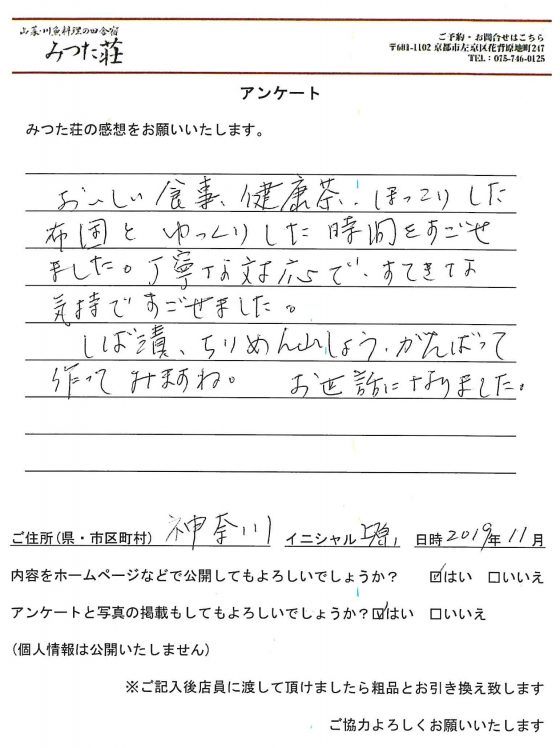 山菜・川魚料理の田舎宿
みつた荘
ご予約・お問合せはこちら
〒601-1102 京都市左京区花背原地町247
TEL：075-746-0125
アンケート
みつた荘の感想をお願いいたします。
おいしい食事、健康茶、ほっこりした
布団とゆっくりした時間をすごせ
ました。丁寧な対応で、すてきな
気持ですごせました。
しば漬、ちりめん山しょう、がんばって
作ってみますね。 お世話になりました。
ご住所(県・市区町村) 神奈川 イニシャル 日時 2019年11月
内容をホームページなどで公開してもよろしいでしょうか？ ☑はい □いいえ
アンケートと写真の掲載もしてもよろしいでしょうか？☑はい □いいえ
(個人情報は公開いたしません)
※ご記入後店員に渡して頂けましたら粗品とお引き換え致します
ご協力よろしくお願いいたします